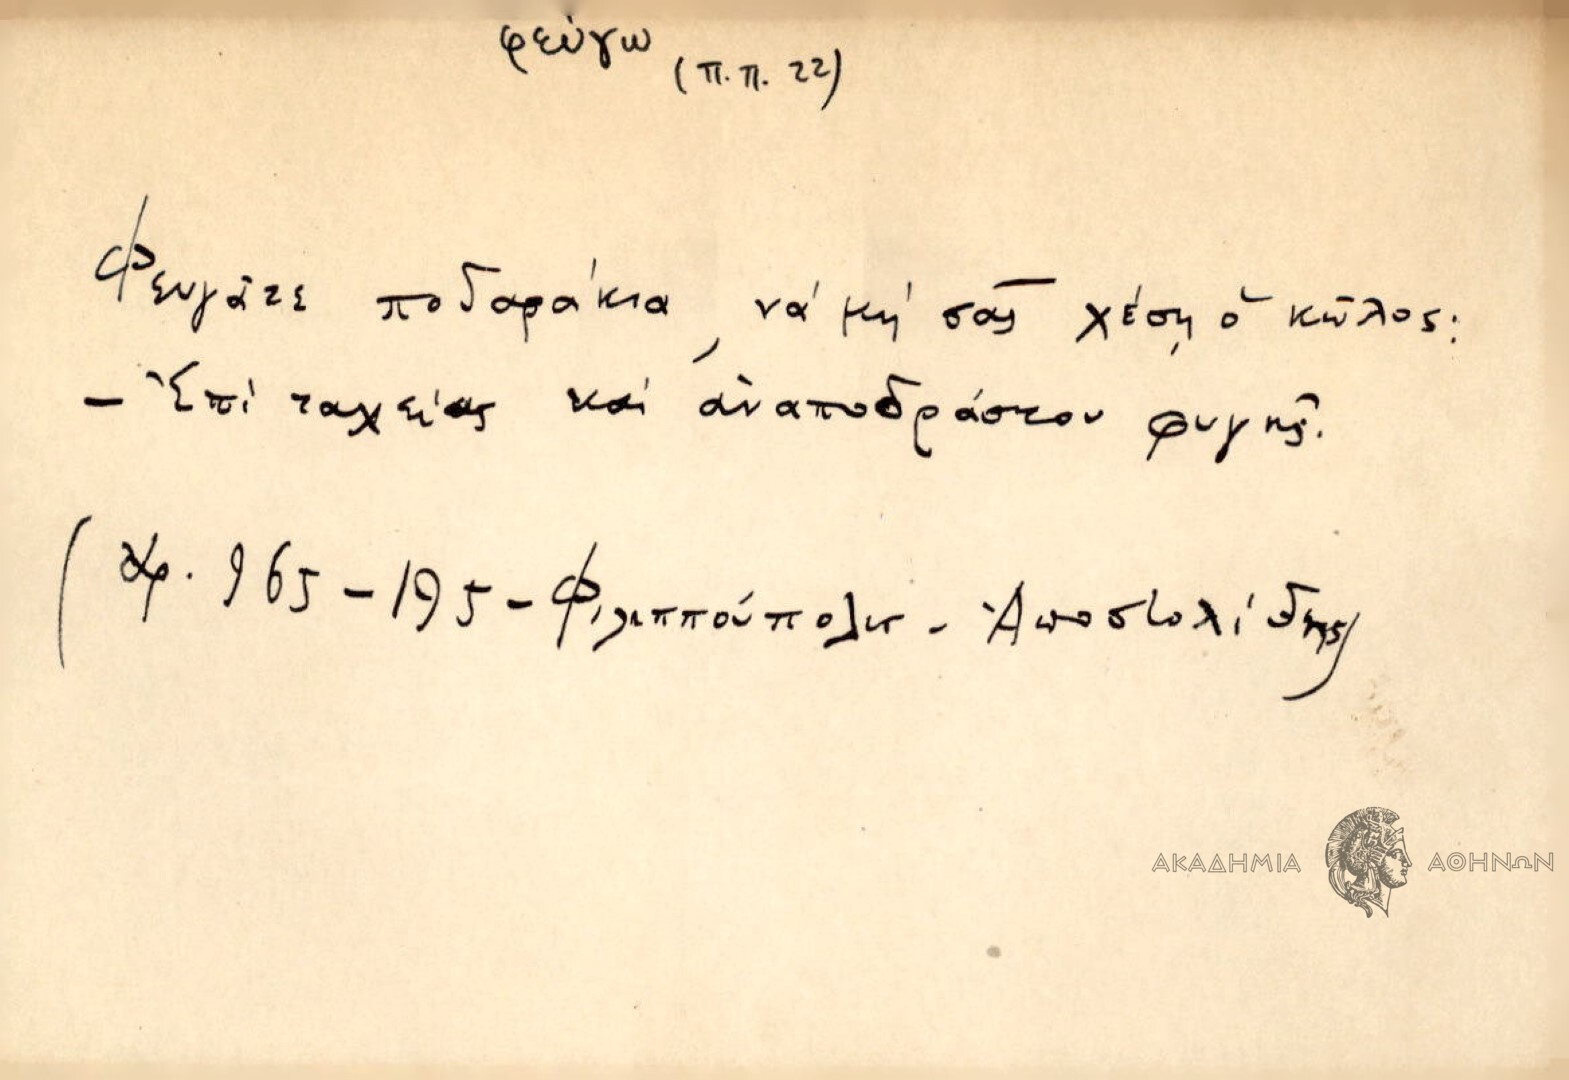 φεύγω
(π.π. 22)
Φευγᾶτε ποδαράκια, νά μή σᾶς χέσῃ ὁ κῶλος:
- Ἐπί ταχείας καί ἀναποδράστου φυγῆς.
(Χφ. 965-195-Φιλιππούπολις - Ἀποστολίδης)
ΑΚΑΔΗΜΙΑ ΑΘΗΝΩΝ